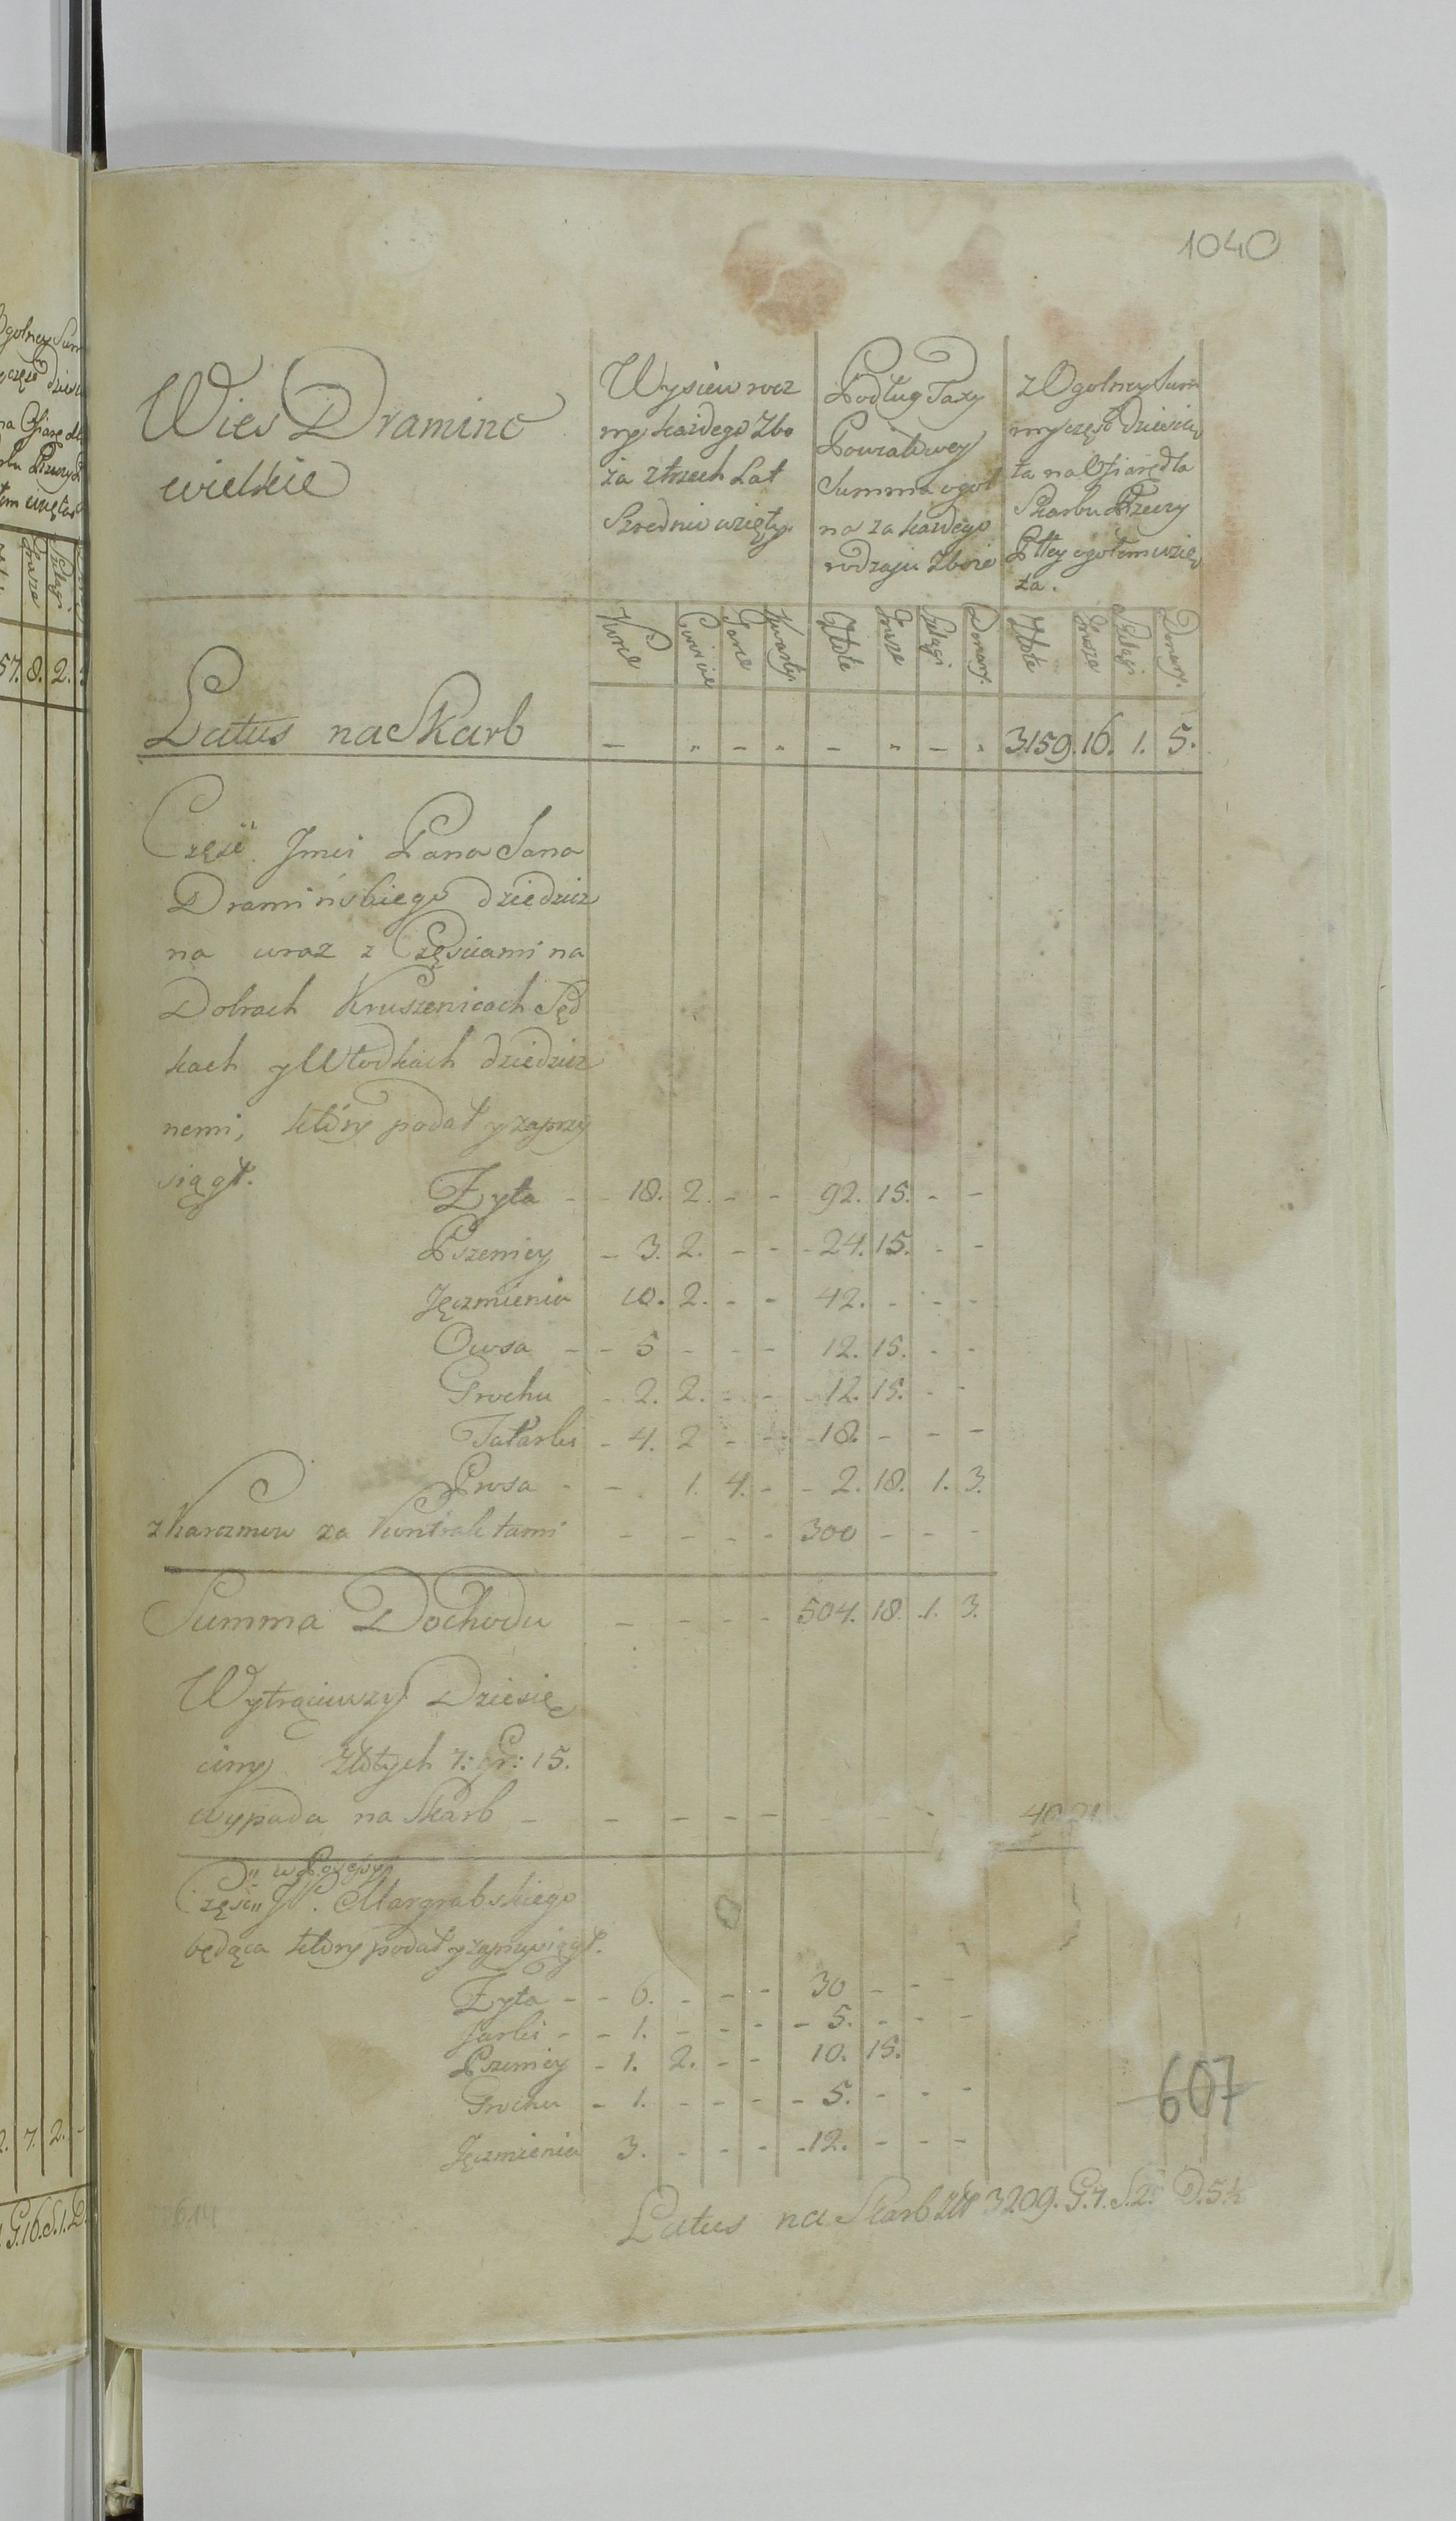 1040
Wies Dramino
wielkie
Wysiew rocz
ny każdego Zbo
ża z trzech Lat
Srednio wzięty.
Podług Taxy
Powiatowey
Summa ogol
na za każdego
rodzaju Zboże
z Ogolney Sum
my częsc Dziesią
ta na Ofiarę dla
Skarbu Rzeczy
Pltey ogołem wzię
ta.
Korce Cwierci Garce Kwarty Złote Grosze Szelągi Denary. Złote Grosze Szelągi Denary.
Latus na Skarb - " - " - " - " 3159. 16. 1. 5.
Częsc Jmci Pana Jana
Dramińskiego dziedzicz
na wraz z Częsciami na
Dobrach Kruszenicach Sęd
kach y Włodkach dziedzicz
nemi, który podał y zaprzy
siągł.
Żyta - - 18. 2. - - 92. 15. - -
Pszenicy - 3. 2. - - - 24. 15. - -
Jęczmienia 10. 2. - - 42. - - -
Owsa - - 5 - - - 12. 15. - -
Grochu - 2. 2. - - - 12. 15. - -
Tatarki - 4. 2 - - - 18. - - -
Prosa - - 1. 4. - - 2. 18. 1. 3.
z Karczmow za Kontraktami - - - - 300 - - -
Summa Dochodu - - - - 504. 18. 1. 3.
Wytrąciwszy Dziesię
ciny Złotych 7: Gr: 15.
wypada na Skarb - - - - - - - -
Częsc JP. Margrabskiego
będąca który podał y zaprzysiągł.
Żyta - - 6. - - - 30 - - -
Jarki - - 1. - - - - 5. - - -
Pszenicy - 1. 2. - - 10. 15.
Grochu - 1. - - - - 5. - - -
Jęczmienia 3. - - - - 12. - - -
607
614
Latus na Skarb Złł 3209. G. 7. S. 2. D. 5½